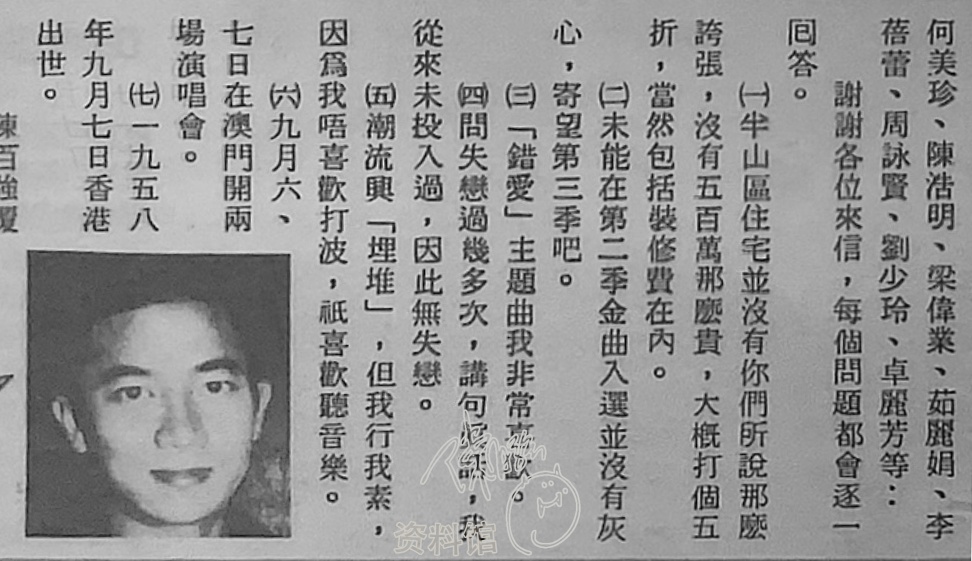 何美珍、陳浩明、梁偉業、茹麗娟、李
蓓蕾、周詠賢、劉少玲、卓麗芳等：
謝謝各位來信，每個問題都會逐一
回答。
㈠半山區住宅並沒有你們所說那麽
誇張，沒有五百萬那麽貴，大概打個五
折，當然包括裝修費在內。
㈡未能在第二季金曲入選並沒有灰
心，寄望第三季吧。
㈢「錯愛」主題曲我非常喜歡。
㈣問失戀過幾多次，講句，我
從來未投入過，因此無失戀。
㈤潮流興「埋堆」，但我行我素，
因爲我唔喜歡打波，祇喜歡聽音樂。
㈥九月六、
七日在澳門開兩
場演唱會。
㈦一九五八
年九月七日香港
出世。
陳百強覆
资料馆